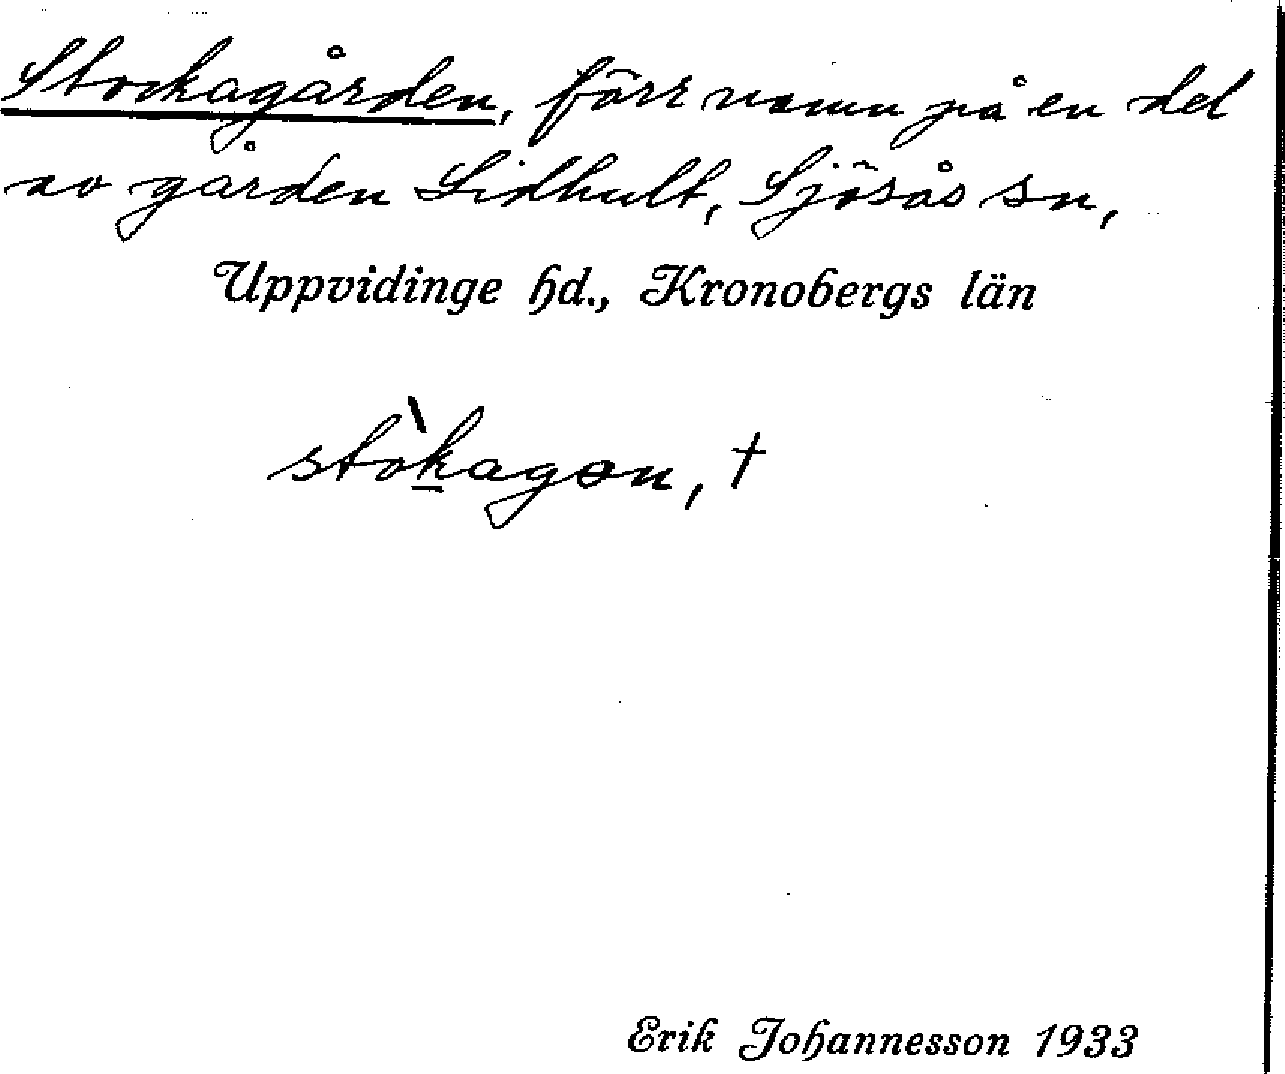 Stockagården, förr namn på en del
av gården Lidhult, Sjösås sn,
Uppvidinge hd., Kronobergs län
stòk̠agon, †
Erik Johannesson 1933